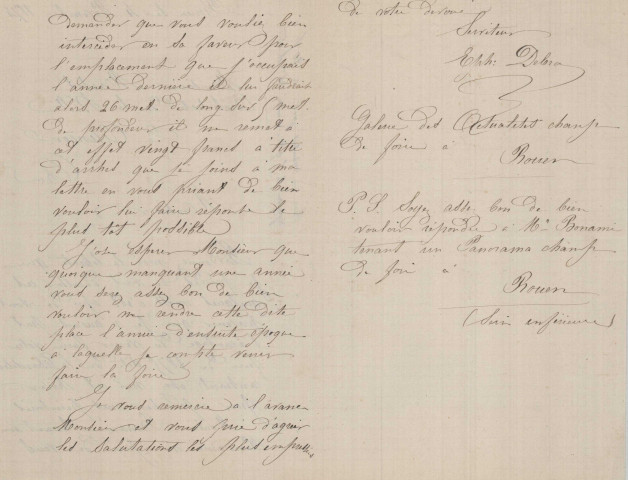 demander que vous voulié bien
interceder en sa faveur pour
l'emplacement que j'occupais
l'année dernière il lui faudrait
alors 26 met. de long sur
de profondeur il me remet à
cet effet vingt francs à titre
d'arrhes que je joins à ma
lettre en vous priant de bien
vouloir lui faire réponse le
plus tôt possible
J'ose esperer Monsieur que
quoique manquant une année
vous serez assez bon de bien
vouloir me rendre cette dite
place l'année d'ensuite époque
à laquelle je compte venir
faire la foire
Je vous remercie à l'avance
Monsieur et vous prie d'agréer
les salutations les plus empressées
de votre dévoué
Serviteur
Eph: Debon
Galerie des Actualités champ
de foire à
Rouen
P. S. Soyez assez bon de bien
vouloir répondre à Mr Bonami
tenant un Panorama champ
de foire à
Rouen
(Sein inférieure)